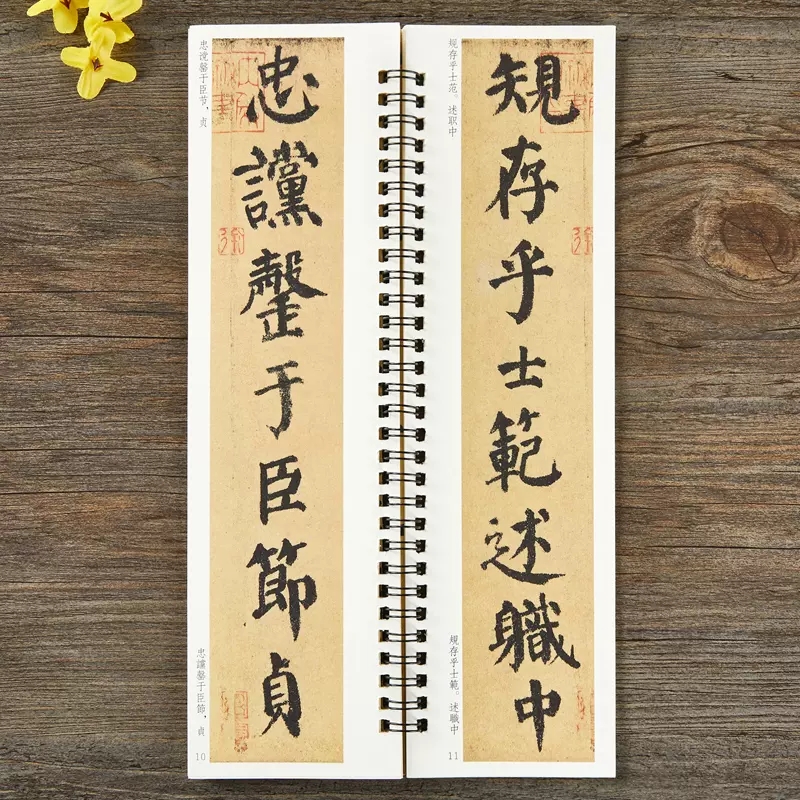 忠谠罄于臣节,贞
忠讜罄于臣節貞
忠讜罄于臣節,貞
10
规存乎士范。述职中
規存乎士範述職中
規存乎士範。述職中
11